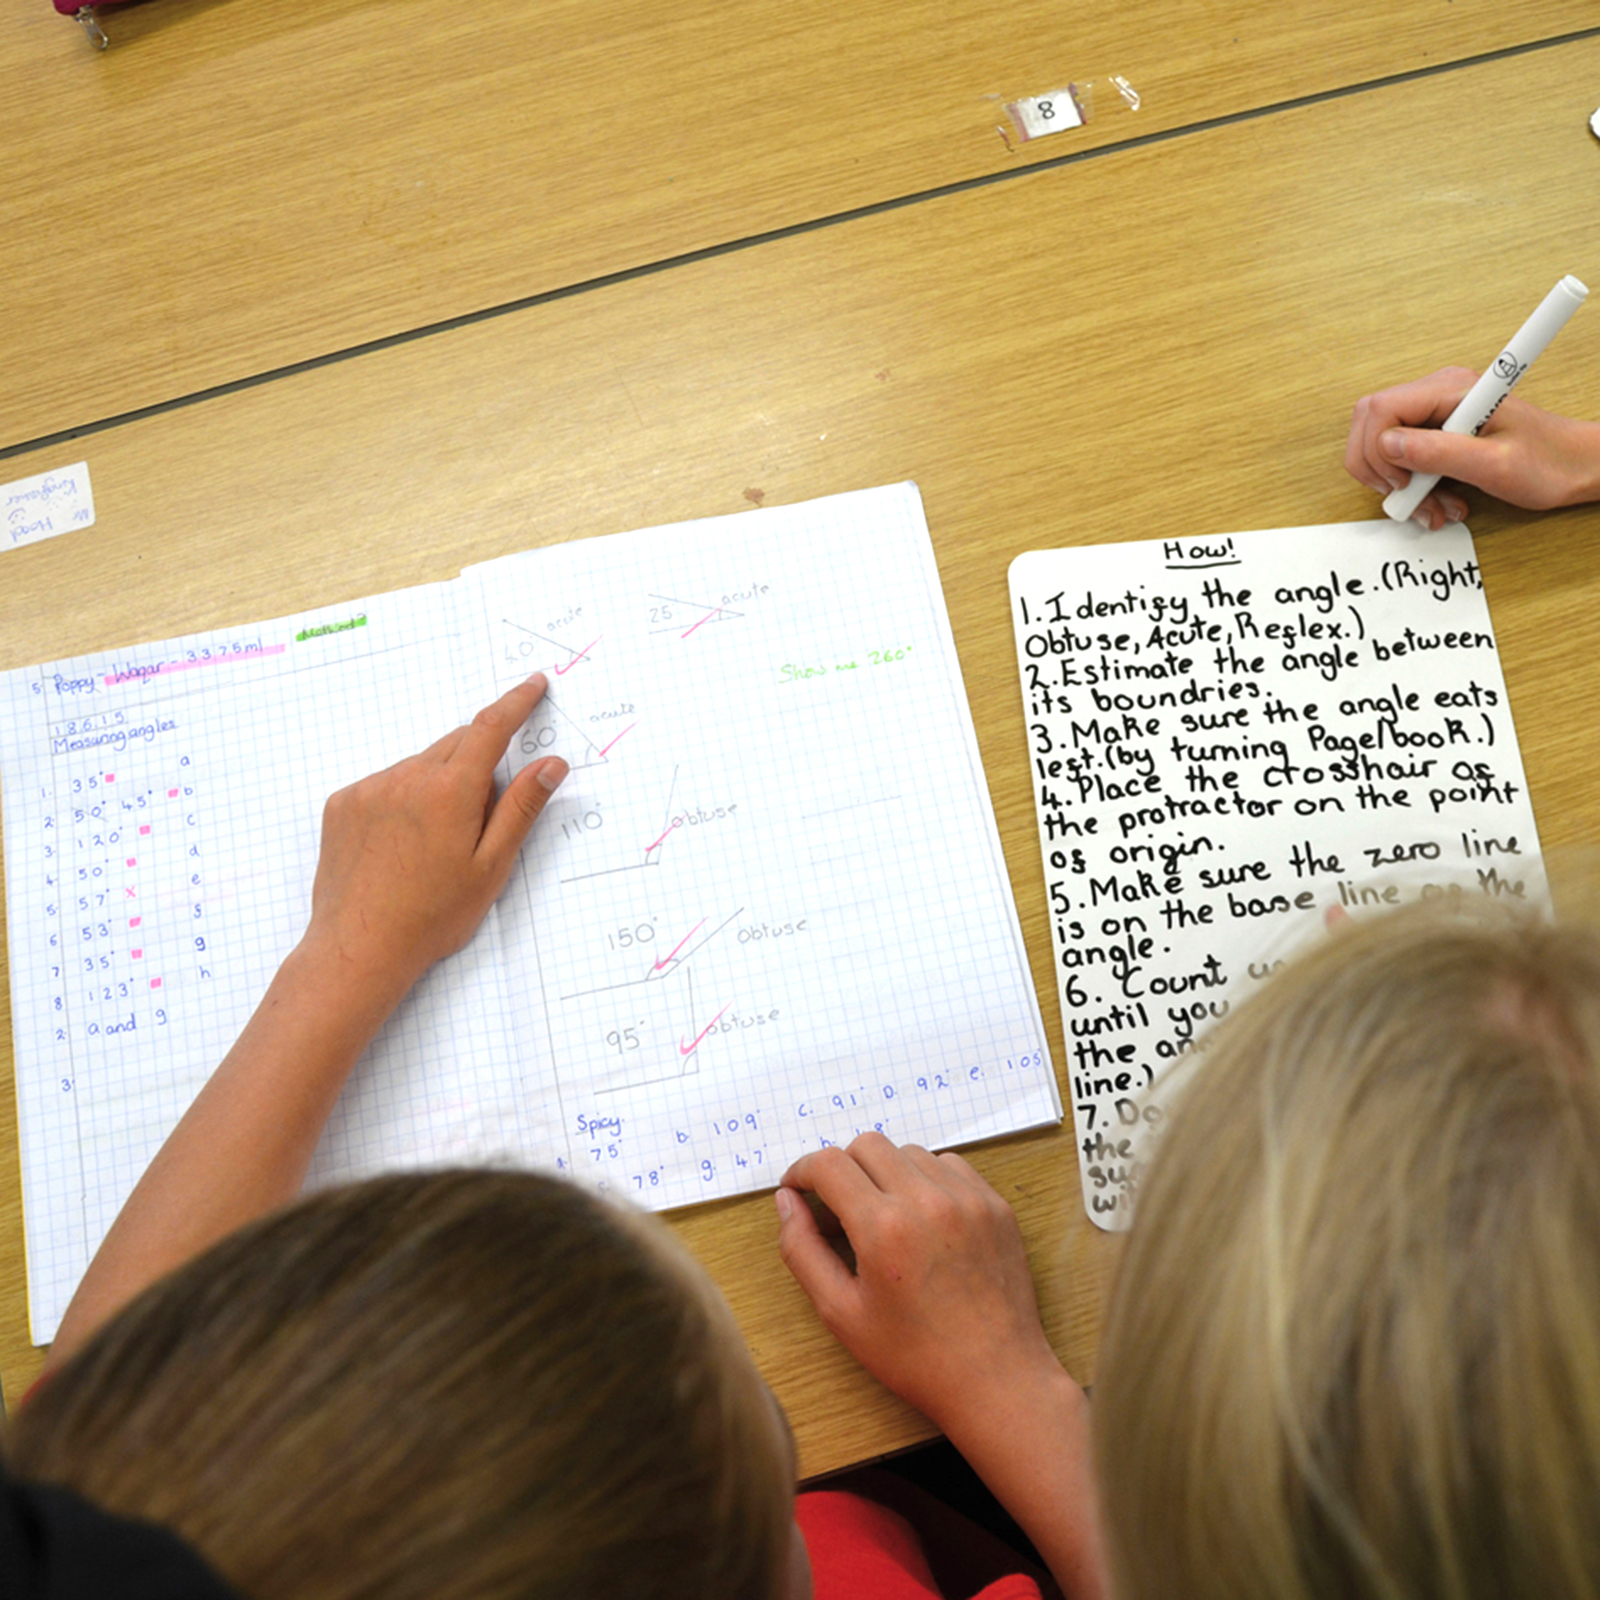 8
Mr Hood
Kingfisher
5. Poppy - Waqar - 3375ml
Method?
18.6.15
Measuring angles
1. 35° a
2. 50° 45° b
3. 120° c
4. 50° d
5. 57° x e
6 53° f
7 35° g
8 123° h
2. a and g
3.
40 acute
25 acute
Show me 260°
60° acute
110° obtuse
150° obtuse
95° obtuse
Spicy.
a. 75° b. 109° c. 91° D. 92° e. 105
78° g. 47° h. 48°
How!
1. Identify the angle. (Right,
Obtuse, Acute, Reflex.)
2. Estimate the angle between
its boundries.
3. Make sure the angle eats
left. (by turning Page/book.)
4. Place the crosshair of
the protractor on the point
of origin.
5. Make sure the zero line
is on the base line of the
angle.
6. Count
until you
the
line.)
7. Do
the